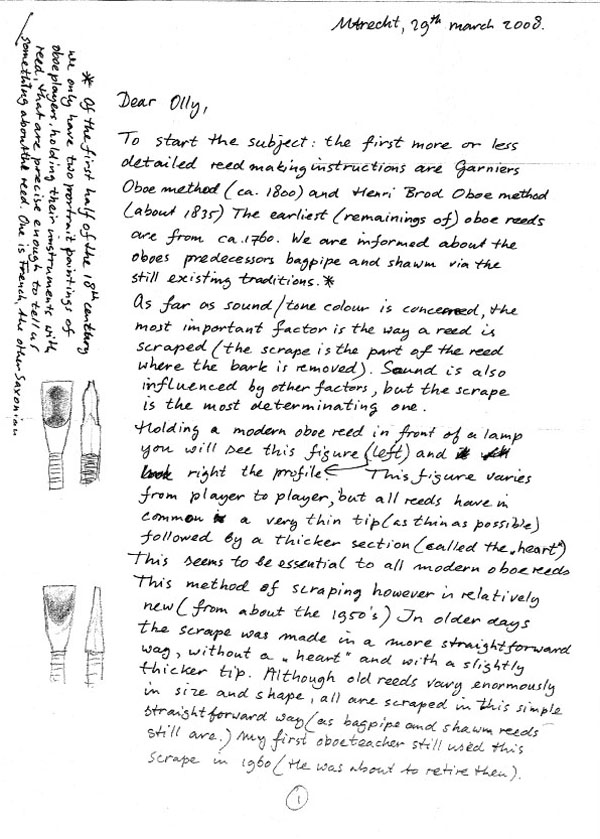 Utrecht, 29th march 2008.
Dear Olly,
To start the subject: the first more or less
detailed reed making instructions are Garniers
Oboe method (ca. 1800) and Henri Brod Oboe method
(about 1835) The earliest (remainings of) oboe reeds
are from ca. 1760. We are informed about the
oboes predecessors bagpipe and shawm via the
still existing traditions.*
As far as sound/tone colour is concerned, the
most important factor is the way a reed is
scraped (the scrape is the part of the reed
where the bark is removed). Sound is also
influenced by other factors, but the scrape
is the most determinating one.
Holding a modern oboe reed in front of a lamp
you will see this figure (left) and
right the profile. This figure varies
from player to player, but all reeds have in
common a very thin tip (as thin as possible)
followed by a thicker section (called the „heart")
This seems to be essential to all modern oboe reeds
This method of scraping however is relatively
new (from about the 1950's) In older days
the scrape was made in a more straightforward
way, without a „heart" and with a slightly
thicker tip. Although old reeds vary enormously
in size and shape, all are scraped in this simple
straightforward way (as bagpipe and shawm reeds
still are.) My first oboeteacher still used this
scrape in 1960 (He was about to retire then).
1
* Of the first half of the 18th century
we only have two portrait paintings of
oboe players, holding their instruments with
reed, that are precise enough to tell us
something about the reed. One is French, the other Saxonian